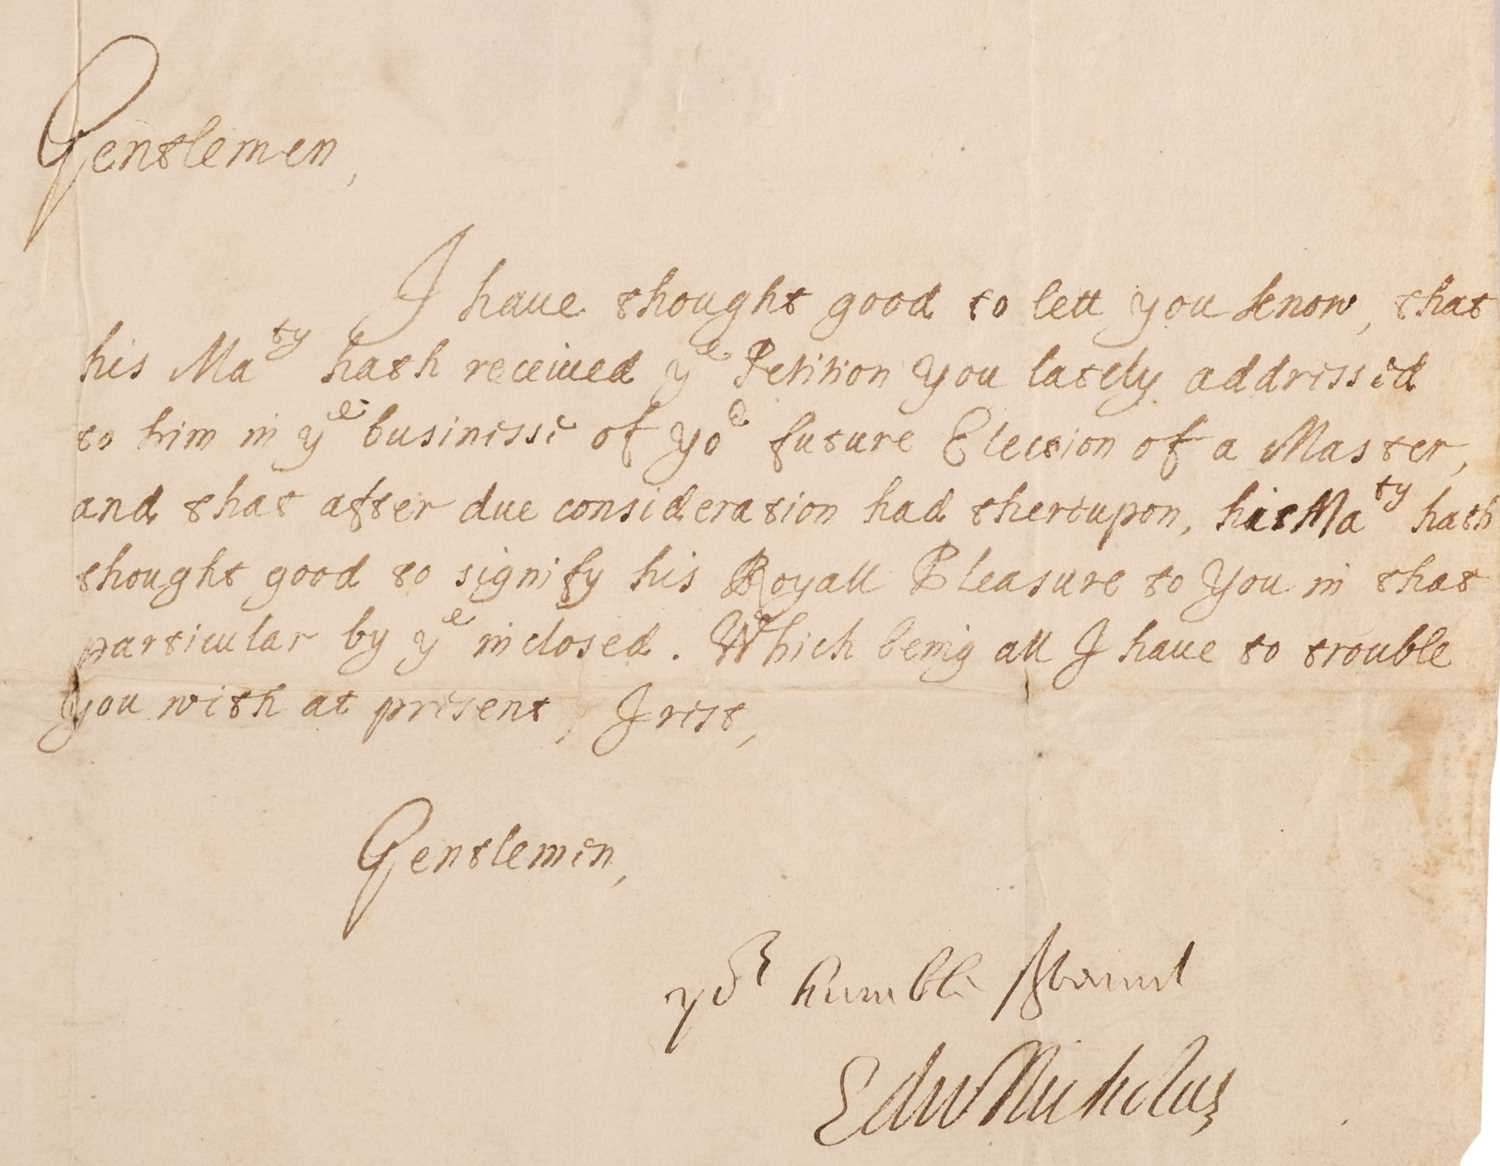 Gentlemen,
I haue thought good to lett you know, that
his Ma^ty hath receiued y^e Petition you lately addressed
to him in y^e businesse of yo^r future Election of a Master,
and that after due consideration had thereupon, his Ma^ty hath
thought good to signify his Royall Pleasure to you in that
particular by y^e inclosed. Which being all I haue to trouble
you with at present, I rest,
Gentlemen,
yo^r humble seruant
Edw Nicholas